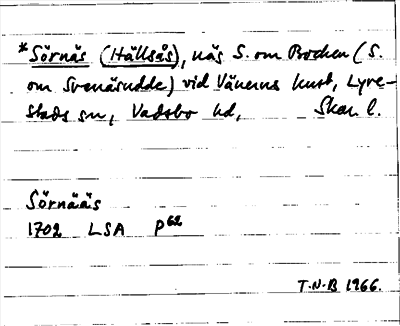 *Sörnäs (Hällsås), näs S. om Brocken (S.
om Svenäsudde) vid Vänerns kust, Lyre-
stads sn, Vadsbo hd, Skar. l.
Sörnääs
1702 LSA P62
T.N-B 1966.